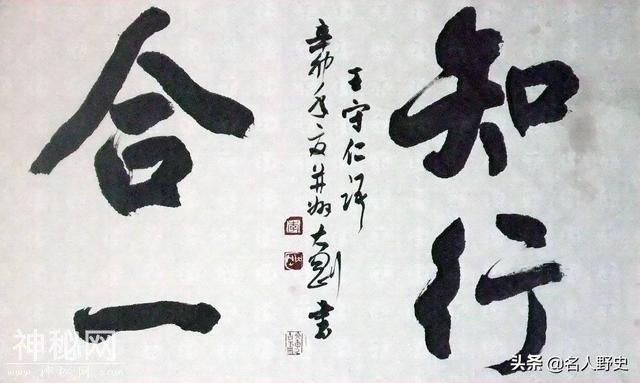 知行
合一
王守仁语
辛卯年夏井翊大川书
神秘网
头条 @名人野史